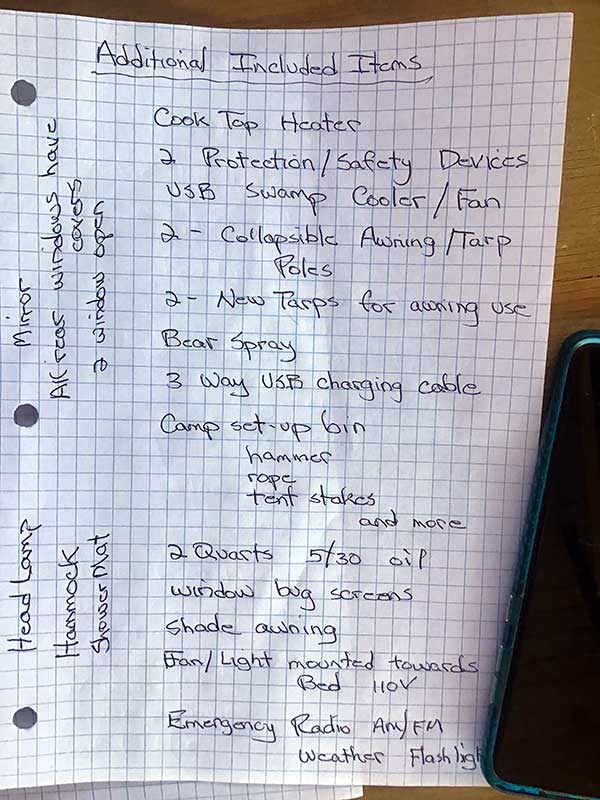 Additional Included Items
Cook Top Heater
2 Protection/Safety Devices
USB Swamp Cooler/Fan
2 - Collapsible Awning/Tarp
Poles
2 - New Tarps for awning use
Bear Spray
3 Way USB charging cable
Camp set-up bin
hammer
rope
tent stakes
and more
2 Quarts 5/30 oil
window bug screens
shade awning
Fan/Light mounted towards
Bed 110V
Emergency Radio Am/FM
Weather Flashligh
Mirror
All rear windows have
covers
2 window open
Head Lamp
Hammock
Shower Mat